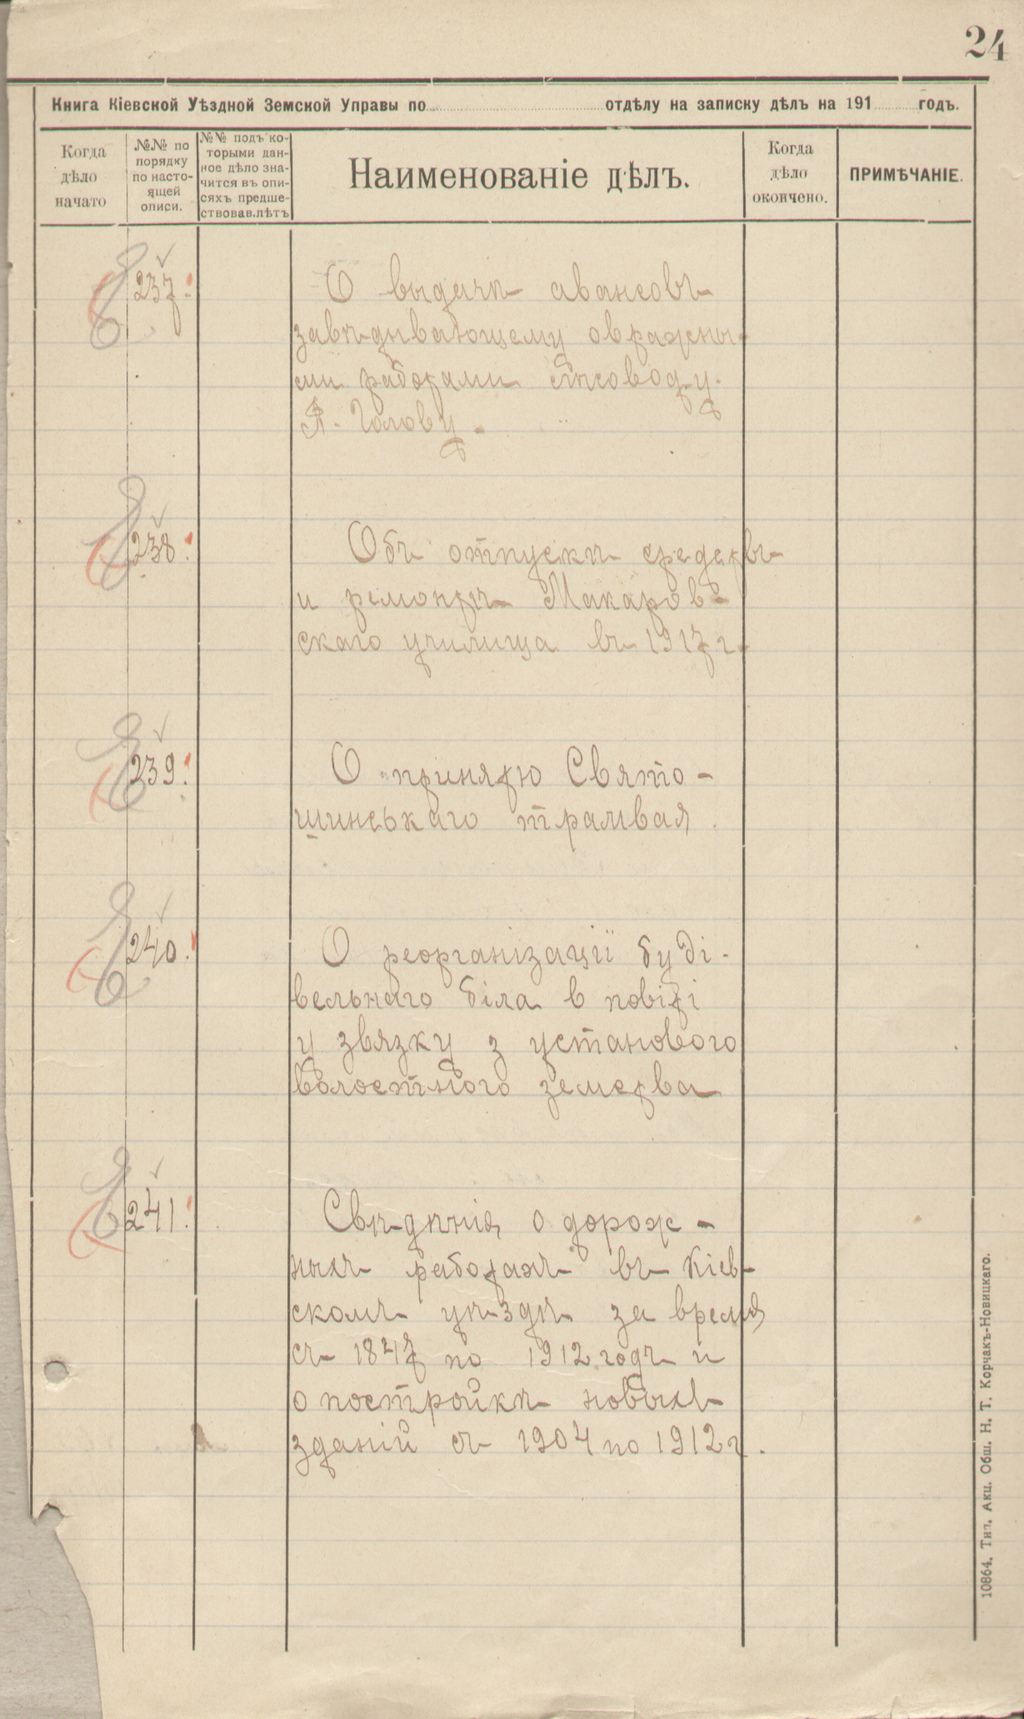 24
Книга Кіевской Уѣздной Земской Управы по отдѣлу на записку дѣлъ на 191 годъ.
Когда дѣло начато
№№ по порядку по насто-ящей описи.
№№ подъ ко-торыми дан-ное дѣло зна-чится въ опи-сяхъ предше-ствовав.лѣтъ
Наименованіе дѣлъ.
Когда дѣло окончено.
ПРИМѢЧАНІЕ.
237. О выдачѣ авансовъ
завѣдывающему овражны-
ми работами лѣсоводу
Я. Голову.
238. Объ отпускѣ средствъ
и ремонтѣ Макаров-
скаго училища въ 1917 г.
239. О принятю Свято-
шинськаго трамвая.
240. О реорганізаціі буді-
вельнаго біла в повіті
у звязку з установого
волостного земства
241. Свѣдѣнія о дорож-
ныхъ работахъ въ Кіев-
скомъ уѣздѣ за время
съ 1847 по 1912 годъ и
о постройкѣ новыхъ
зданій съ 1904 по 1912 г.
10864. Тип. Акц. Общ. Н. Т. Корчакъ-Новицкаго.